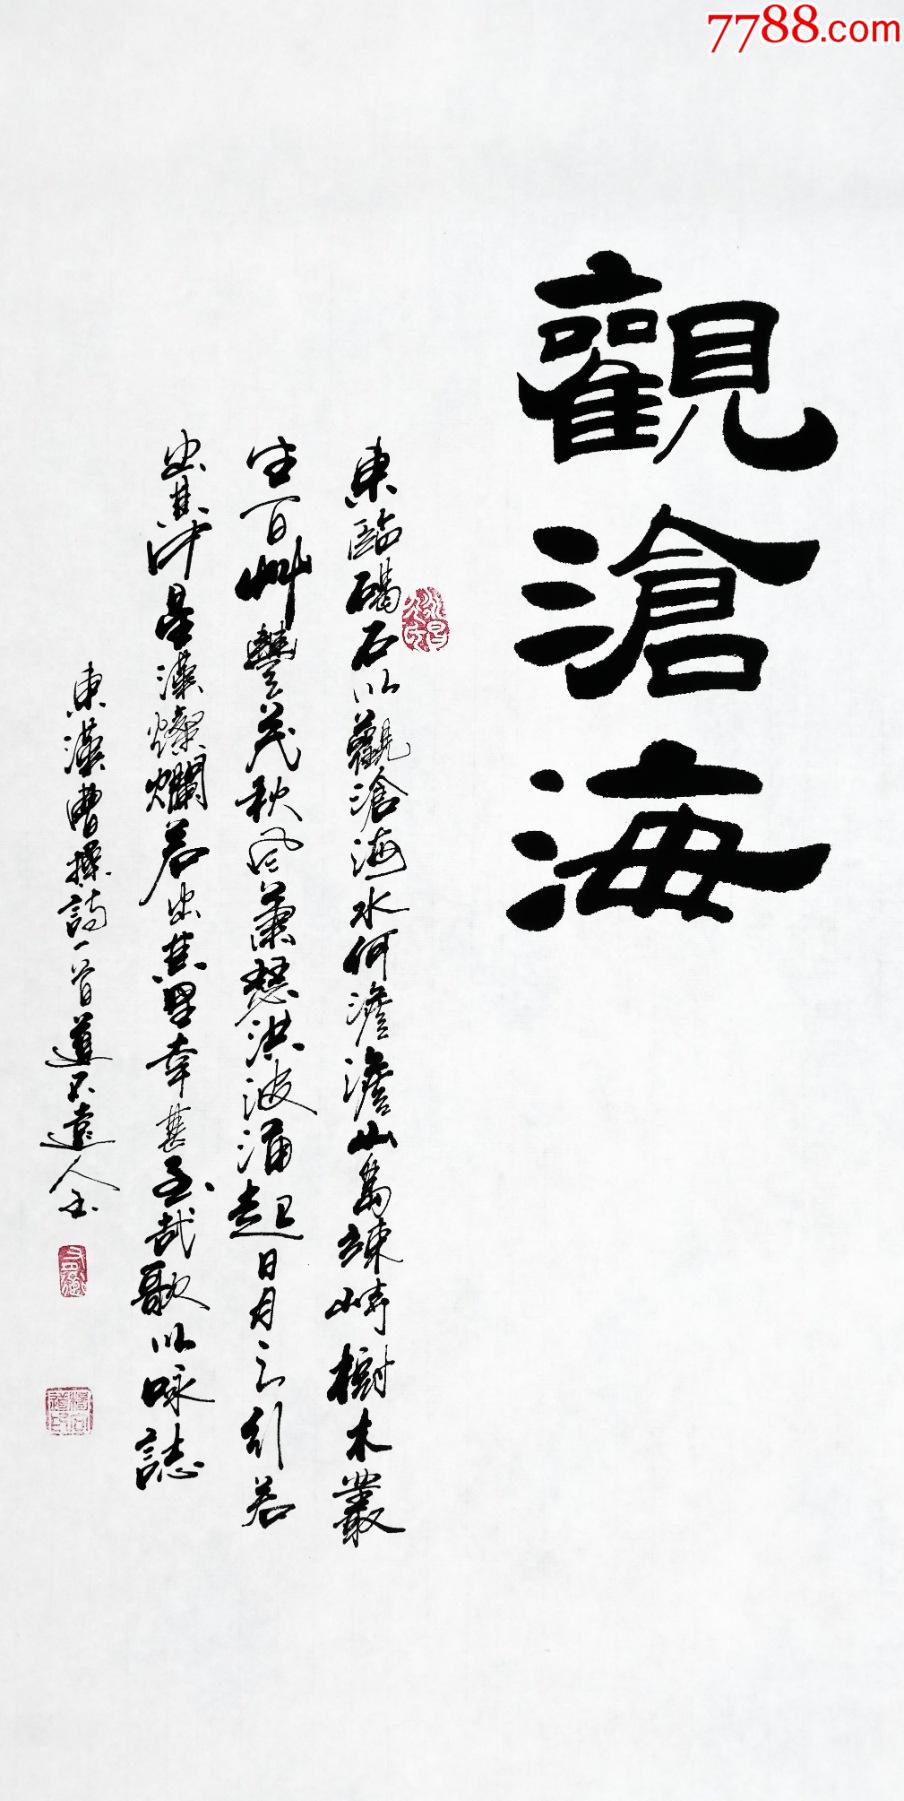 7788.com
觀滄海
東臨碣石以觀滄海水何澹澹山島竦峙樹木叢
生百艸豐茂秋風蕭瑟洪波涌起日月之行若
出其中星漢燦爛若出其里幸甚至哉歌以咏誌
東漢曹操詩一首道不遠人书